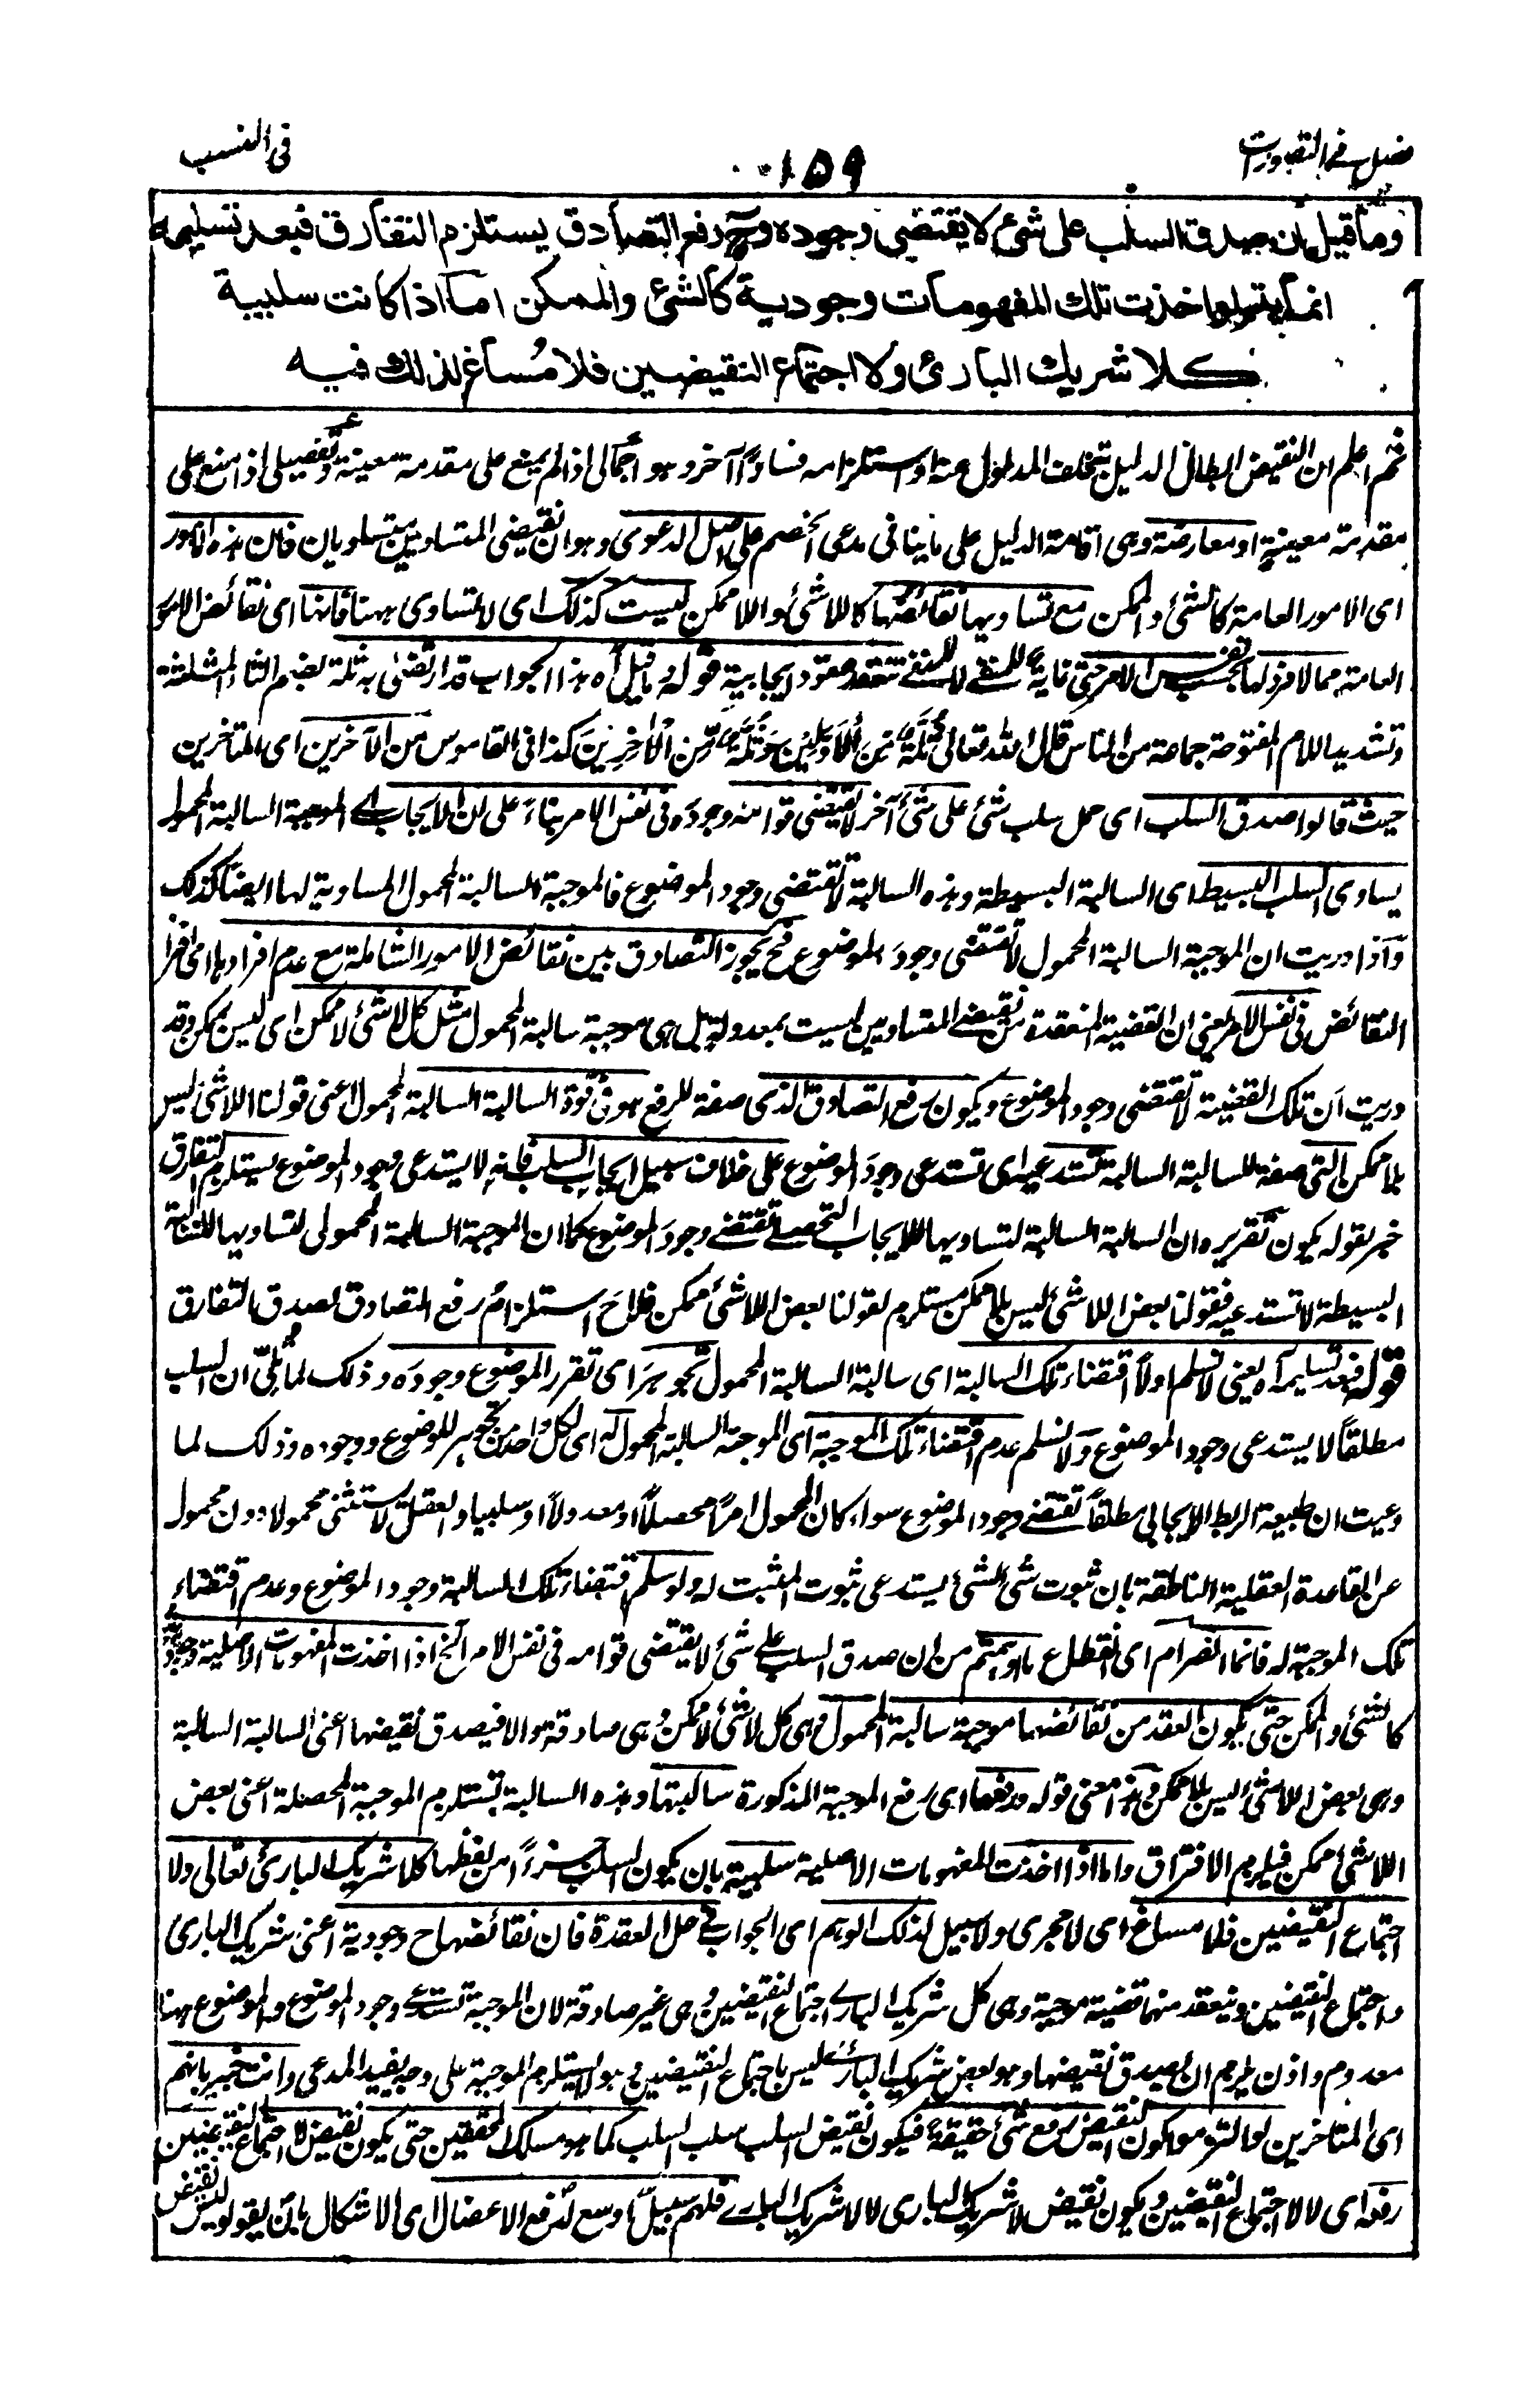 فصل في التصورات
١٥٩
في النسب
وما قيل ان صدق السلب على شئ لا يقتضي وجوده وح رفع التصادق يستلزم التفارق فبعد تسليمه
انما يتم لو اخذت تلك المفهومات وجودية كالشئ والممكن اما اذا كانت سلبية
كلا شريك البارئ ولا اجتماع النقيضين فلا مُساغ لذلك فيه
ثم اعلم ان النقيض ابطال الدليل بتخلف المدلول عنه او استلزامه فسادًا آخر وهو اجمالى اذا لم يمنع على مقدمة معينة وتفصيلى اذا منع على
مقدمة معينة او معارضة وهى اقامة الدليل على ما ينافى مدعى الخصم على اصل الدعوى وهو ان نقيضى المتساويين متساويان فان هذه الامور
اى الامور العامة كالشئ والممكن مع تساويها نقائضها كاللاشئ واللاممكن ليست كذلك اى لا تتساوى ههنا فانها اى نقائض الامور
العامة مما لا فرد لها بحسب نفس الامر حتى عقود ايجابية قوله وما قيل اه هذا الجواب قد ارتضى به ثلة بضم الثاء المثلثة
وتشديد اللام المفتوحة جماعة من الناس قال الله تعالى ثُلَّةٌ مِّنَ الْأَوَّلِيْنَ وَثُلَّةٌ مِّنَ الْآخِرِيْنَ كذا فى القاموس من الآخرين اى المتأخرين
حيث قالوا صدق السلب اى حمل سلب شئ على شئ آخر لا يقتضى قوامه وجوده فى نفس الامر بناءً على ان الايجاب اى الموجبة السالبة المحمول
يساوى السلب البسيط اى السالبة البسيطة وهذه السالبة لا تقتضى وجود الموضوع فالموجبة السالبة المحمول المساوية لها ايضًا كذلك
واذا دريت ان الموجبة السالبة المحمول لا تقتضى وجود الموضوع فح يجوز التصادق بين نقائض الامور الشاملة مع عدم افرادها اى افراد
النقائض فى نفس الامر يعنى ان القضية المنعقدة من نقيضى المتساويين ليست بمعدولة بل هى موجبة سالبة المحمول مثل كل لاشئ لاممكن اى ليس بممكن وقد
دريت ان تلك القضية لا تقتضى وجود الموضوع ويكون رفع التصادق الذى صفة للرفع هو فى قوة السالبة السالبة المحمول اعنى قولنا اللاشئ ليس
بلاممكن التى صفة للسالبة السالبة تستدعى اى تستدعى وجود الموضوع على خلاف سبيل ايجاب السلب فانه لا يستدعى وجود الموضوع يستلزم التفارق
خبر لقوله يكون تقريره ان السالبة السالبة لتساويها للايجاب التحصيلى تقتضى وجود الموضوع كما ان الموجبة السالبة المحمول لتساويها للسالبة
البسيطة لا تستدعيه فقولنا بعض اللاشئ ليس بلاممكن مستلزم لقولنا بعض اللاشئ ممكن فلاح استلزام رفع التصادق لصدق التفارق
قوله فبعد تسليمه اه يعنى لا نسلم اولًا اقتضاء تلك السالبة اى سالبة السالبة المحمول تجوهر اى تقرر الموضوع وجوده وذلك لما ان السلب
مطلقًا لا يستدعى وجود الموضوع ولا نسلم عدم اقتضاء تلك الموجبة اى الموجبة السالبة المحمول له اى لكل واحد من تجوهر للموضوع ووجوده وذلك لما
وعيت ان طبيعة الربط الايجابى مطلقًا تقتضى وجود الموضوع سواء كان المحمول امرًا محصلًا او معدولًا او سلبيا والعقل لا يستثنى محمولا دون محمول
عن القاعدة العقلية الناطقة بان ثبوت شئ لشئ يستدعى ثبوت المثبت له ولو سلم اقتضاء تلك السالبة وجود الموضوع وعدم اقتضاء
تلك الموجبة له فانما انصرام اى انقطاع ما اوهمتم من ان صدق السلب على شئ لا يقتضى قوامه فى نفس الامر الخ اذا اخذت المفهومات الاصلية وجودية
كالشئ والممكن حتى يكون العقد من نقائضها موجبة سالبة المحمول وهى كل لاشئ لاممكن وهى صادقة والا فيصدق نقيضها اعنى السالبة السالبة
وهى بعض اللاشئ ليس بلاممكن وهذا معنى قوله ورفعها اى رفع الموجبة المذكورة سالبتها وهذه السالبة تستلزم الموجبة المحصلة اعنى بعض
اللاشئ ممكن فيلزم الافتراق واما اذا اخذت المفهومات الاصلية سلبية بان يكون السلب جزءًا من لفظها كلا شريك البارئ تعالى ولا
اجتماع النقيضين فلا مساغ اى لا مجرى ولا سبيل لذلك الوهم اى الجواب فى حل العقدة فان نقائضها ح وجودية اعنى شريك البارئ
واجتماع النقيضين وينعقد منها قضية موجبة وهى كل شريك البارى اجتماع النقيضين وهى غير صادقة لان الموجبة تستدعى وجود الموضوع والموضوع ههنا
معدوم واذن يلزم ان يصدق نقيضها وهو بعض شريك البارى ليس باجتماع النقيضين وهو لا يستلزم الموجبة على وجه يفيد المدعى وانت خبير بانهم
اى المتاخرين لو التزموا كون النقيض رفع شئ حقيقةً فيكون نقيض السلب سلب السلب كما هو مسلك المحققين حتى يكون نقيض لا اجتماع النقيضين
رفعه اى لا لا اجتماع النقيضين ويكون نقيض لا شريك البارى لا لا شريك البارى فلهم سبيل اوسع لدفع الاعضال اى الاشكال بان يقولوا ليس نقيض